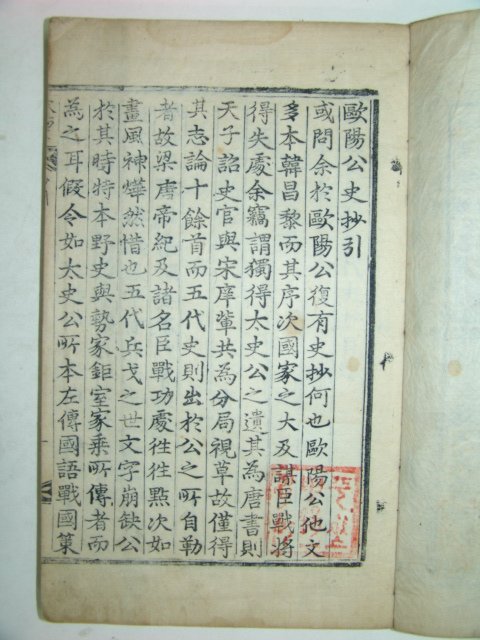 歐陽公史抄引
或問余於歐陽公復有史抄何也歐陽公他文
多本韓昌黎而其序次國家之大及謀臣戰將
得失處余竊謂獨得太史公之遺其為唐書則
天子詔史官與宋庠輩共為分局視草故僅得
其志論十餘首而五代史則出於公之所自勒
者故梁唐帝紀及諸名臣戰功處徃徃點次如
畫風神燁然惜也五代兵戈之世文字崩缺公
於其時特本野史與勢家鉅室家乗所傳者而
為之耳假令如太史公所本左傳國語戰國策